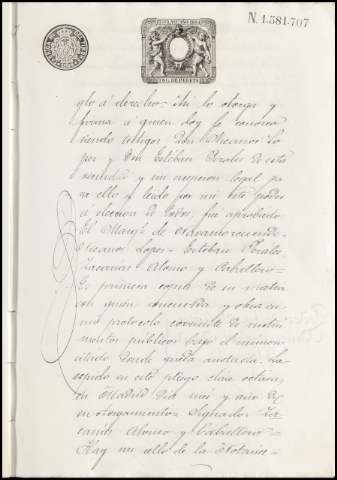 N. 1.581.707
glo á derecho. Así lo otorga y
firma á quien doy fe conozco
siendo testigos Don Nicanor Lo
pez y Don Esteban Perales de esta
vecindad y sin excepcion legal pa
ra ello y leido por mi este poder
á eleccion de todos, fué aprobado
El Marqs. de Navamorcuende
Nicanor Lopez - Esteban Perales
Zacarias Alonso y Caballero =
Es primera copia de su matriz
con quien concuerda y obra en
mi protocolo corriente de instru
mentos publicos bajo el numero
citado donde queda anotada. La
espido en este pliego clase octava,
en Madrid dia mes y año de
su otorgamiento = Signado = Za
carias Alonso y Caballero =
Hay un sello de la Notaria =